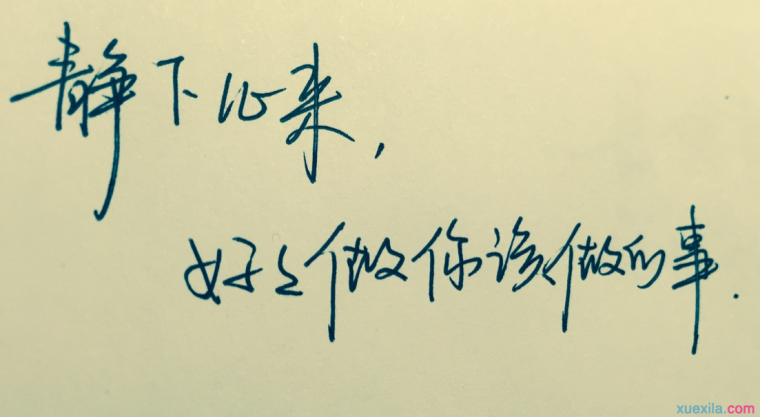 静下心来，
好々做你该做的事.
xuexila.com